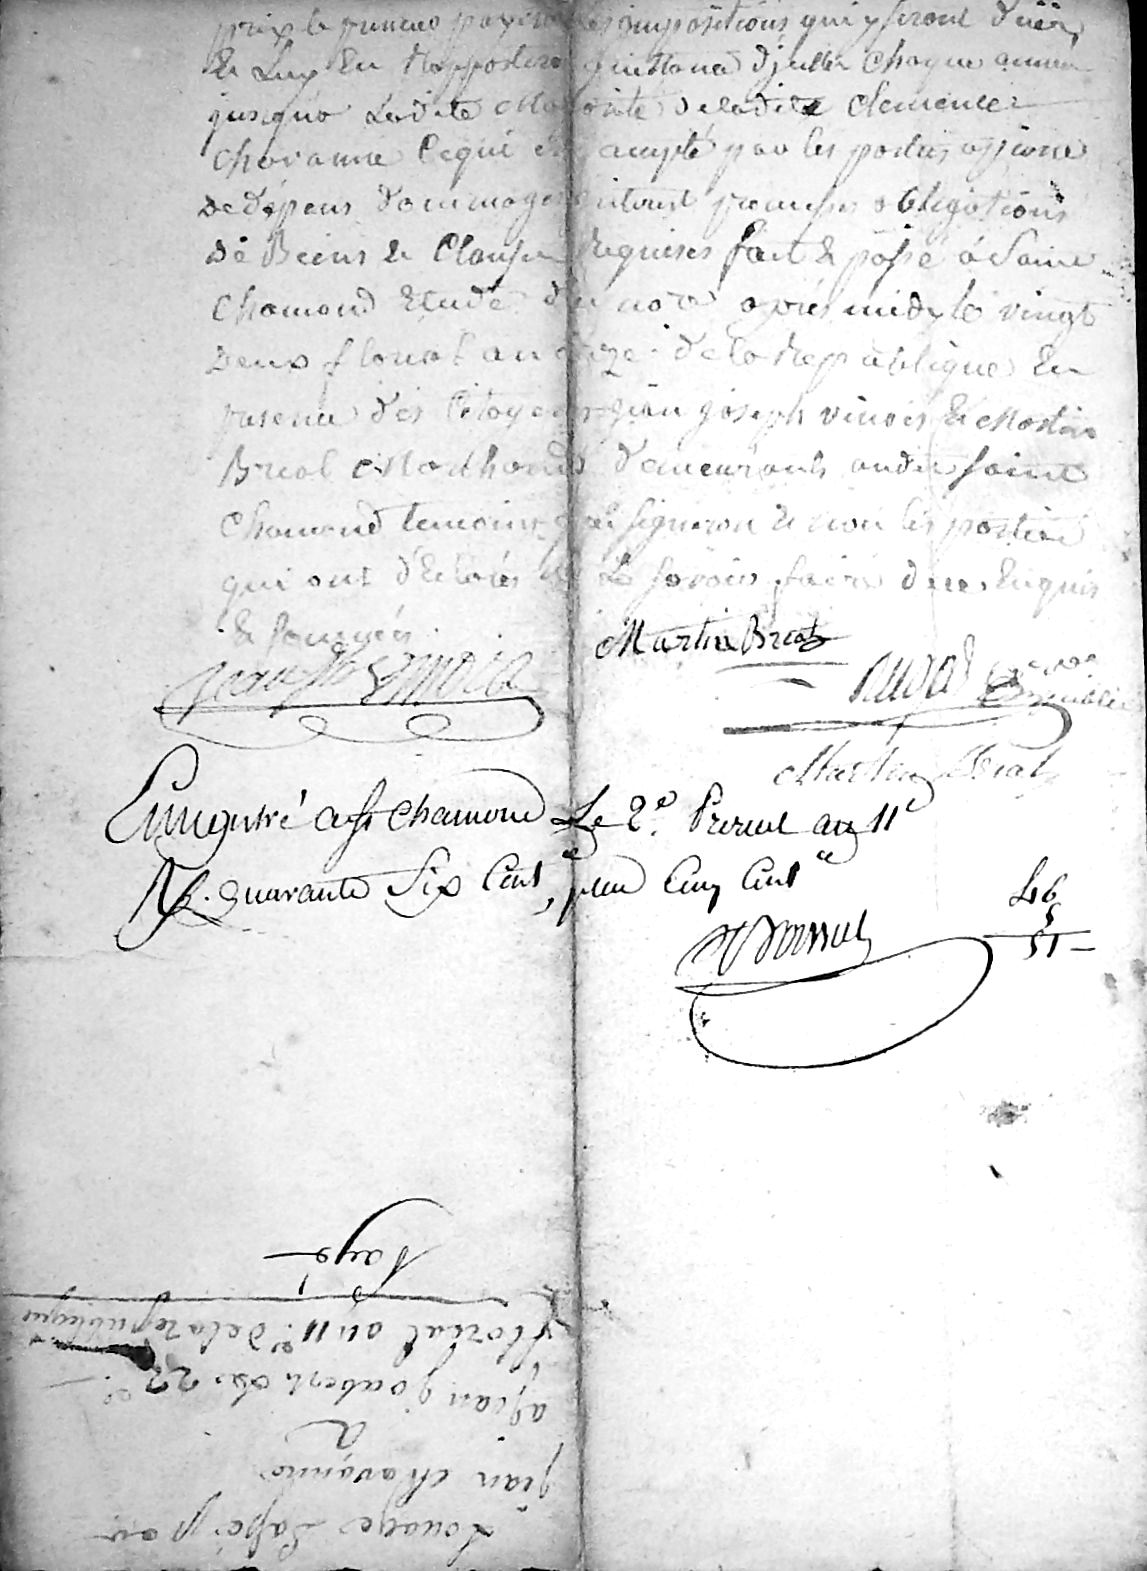 prix le preneur payera les impositions qui y seront düer
& Luy En Rapportera quittance d juillet chaque année
jusqu'a Ladite Majorité deladite clemence
chavanne Ce qui est accepté par les parties apeine
De dépens dommages intérest promesses obligations
De Biens & Clauses Requises fait & passé a Saint
Chamond Etude du nore apres midy le vingt
Deux floreal an onze de la Republique En
presence des Citoyens jean joseph vinois & Martin
Breat Marchands demeurants audit saint
Chamond temoins qui signeron & non les parties
qui ont déclarés ne Le savoir faire de ce Enquis
& sommées
Martin Breat
Martin Breat
Enregistré a St Chamond Le 2e. Prerial an 11e
R. quarante Six Cent, pour Cinq Cent
46
5
51 —
Louage passé par
jean chavanne
A
a jean joubert du 22e
floreal an 11e de la republique
Payé